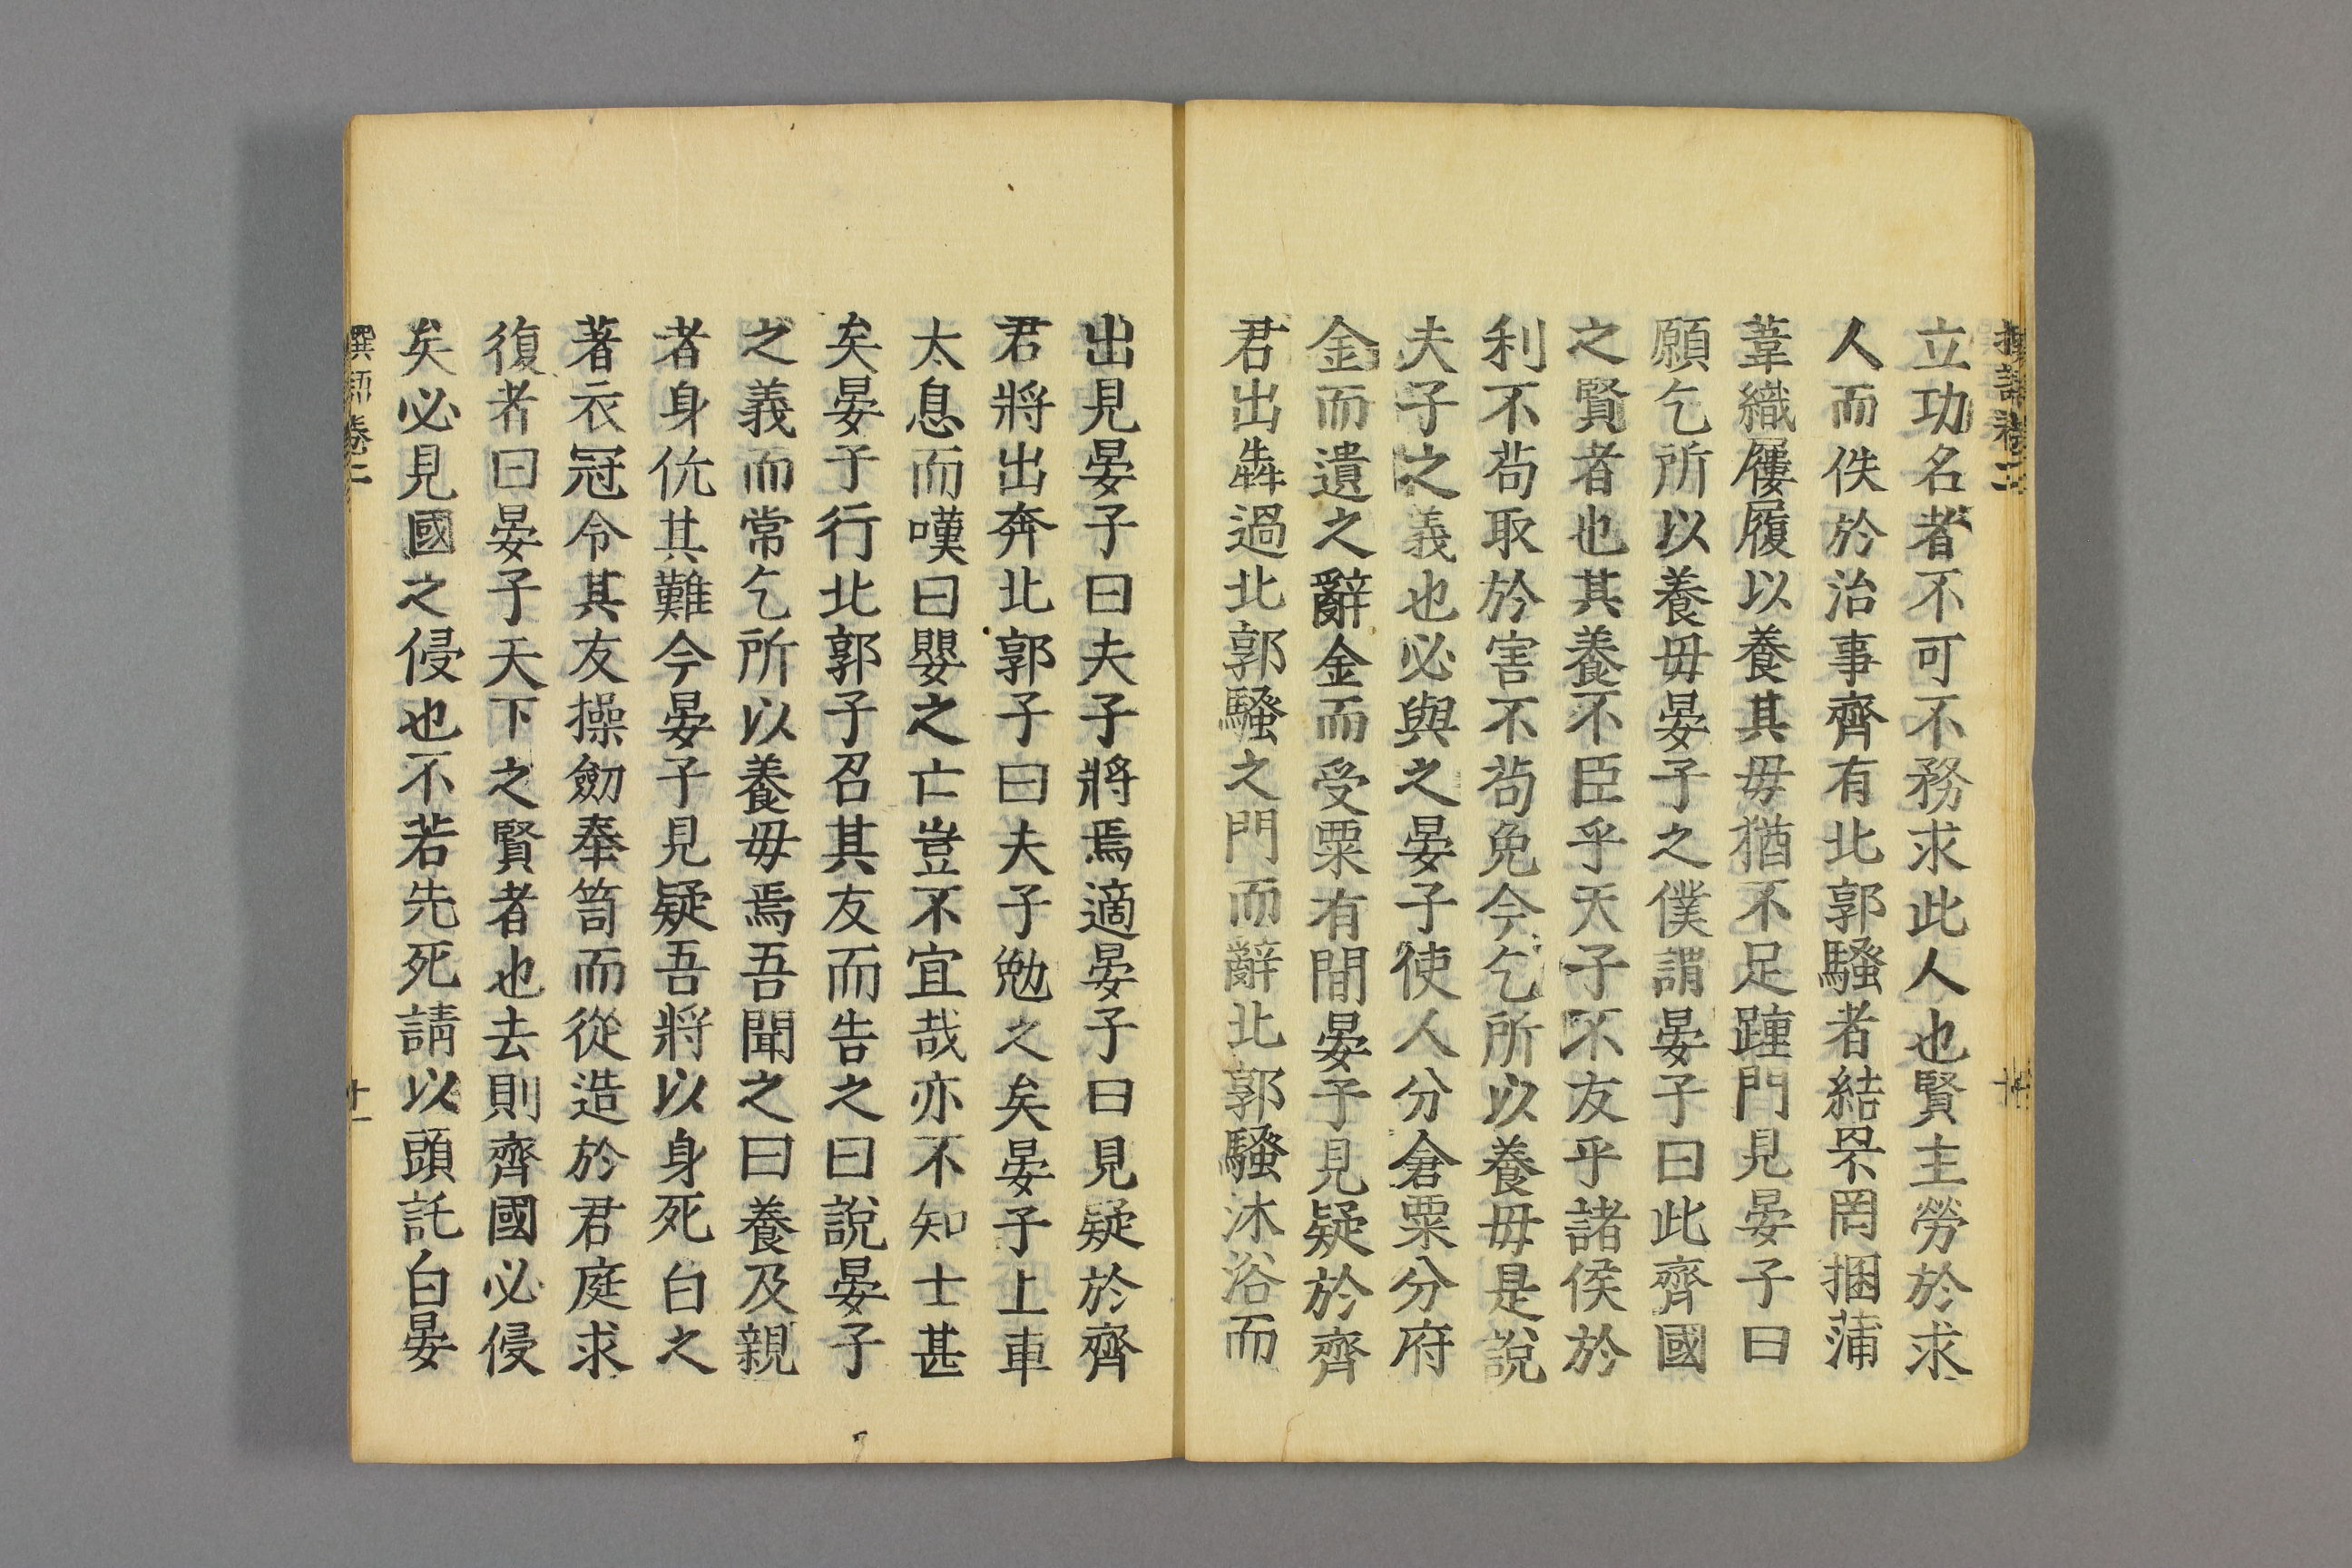 立功名者不可不務求此人也賢主勞於求
人而佚於治事齊有北郭騷者結罘罔捆蒲
葦織屨履以養其毋猶不足踵門見晏子曰
願乞所以養毋晏子之僕謂晏子曰此齊國
之賢者也其養不臣乎天子不友乎諸侯於
利不苟取於害不苟免今乞所以養毋是說
夫子之義也必與之晏子使人分倉粟分府
金而遺之辭金而受粟有間晏子見疑於齊
君出犇過北郭騷之門而辭北郭騷沐浴而
出見晏子曰夫子將焉適晏子曰見疑於齊
君將出奔北郭子曰夫子勉之矣晏子上車
太息而嘆曰嬰之亡豈不宜哉亦不知士甚
矣晏子行北郭子召其友而告之曰說晏子
之義而常乞所以養毋焉吾聞之曰養及親
者身伉其難今晏子見疑吾將以身死白之
著衣冠令其友操劒奉笥而從造於君庭求
復者曰晏子天下之賢者也去則齊國必侵
矣必見國之侵也不若先死請以頭託白晏
卷二
十一